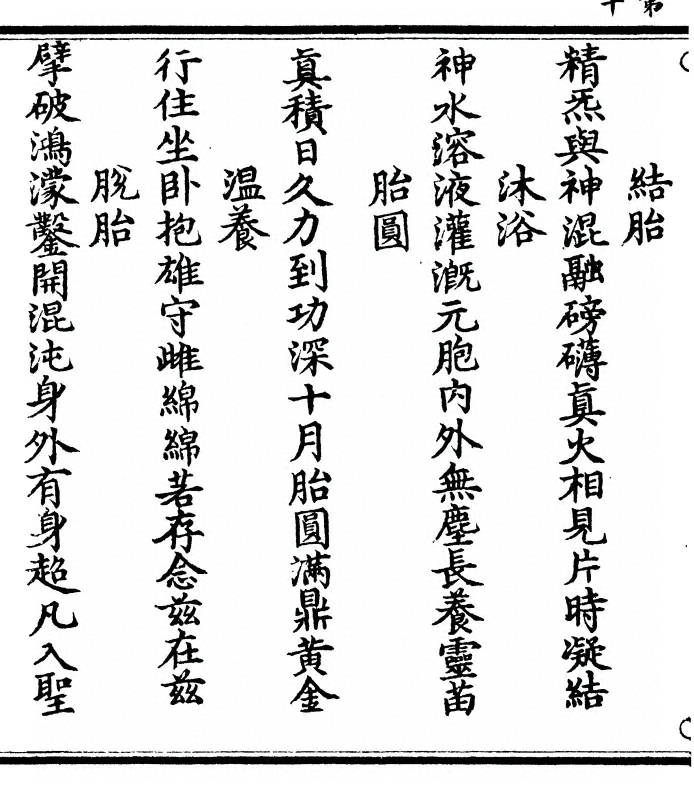 結胎
精炁與神混融磅礴眞火相見片時凝結
沐浴
神水溶液灌漑元胞内外無塵長養靈苗
胎圓
眞積日久力到功深十月胎圓滿鼎黄金
温養
行住坐卧抱雄守雌綿綿若存念兹在兹
脫胎
擘破鴻濛鑿開混沌身外有身超凡入聖